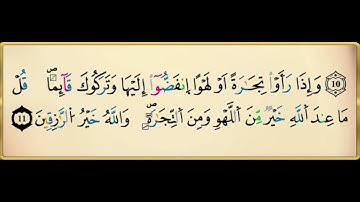 ⑩ وَإِذَا رَأَوْا۟ تِجَـٰرَةً أَوْ لَهْوًا ٱنفَضُّوٓا۟ إِلَيْهَا وَتَرَكُوكَ قَآئِمًا ۚ قُلْ
مَا عِندَ ٱللَّهِ خَيْرٌ مِّنَ ٱللَّهْوِ وَمِنَ ٱلتِّجَـٰرَةِ ۚ وَٱللَّهُ خَيْرُ ٱلرَّٰزِقِينَ ⑪